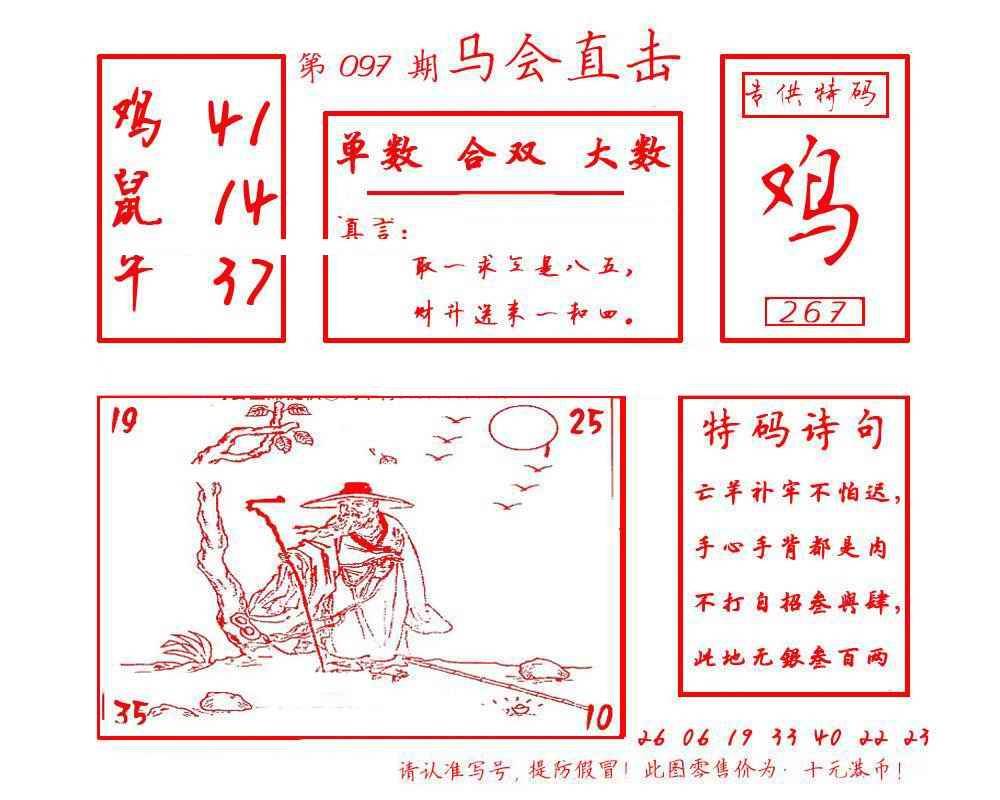 第 097 期 马会直击
鸡 41
鼠 14
午 37
单数 合双 大数
真言：
取一求三是八五，
财升送来一和四。
专供特码
鸡
267
19
25
35
10
特码诗句
亡羊补牢不怕迟，
手心手背都是肉
不打自招叁與肆，
此地无銀叁百两
26 06 19 33 40 22 23
请认准写号，提防假冒！此图零售价为·十元港币！